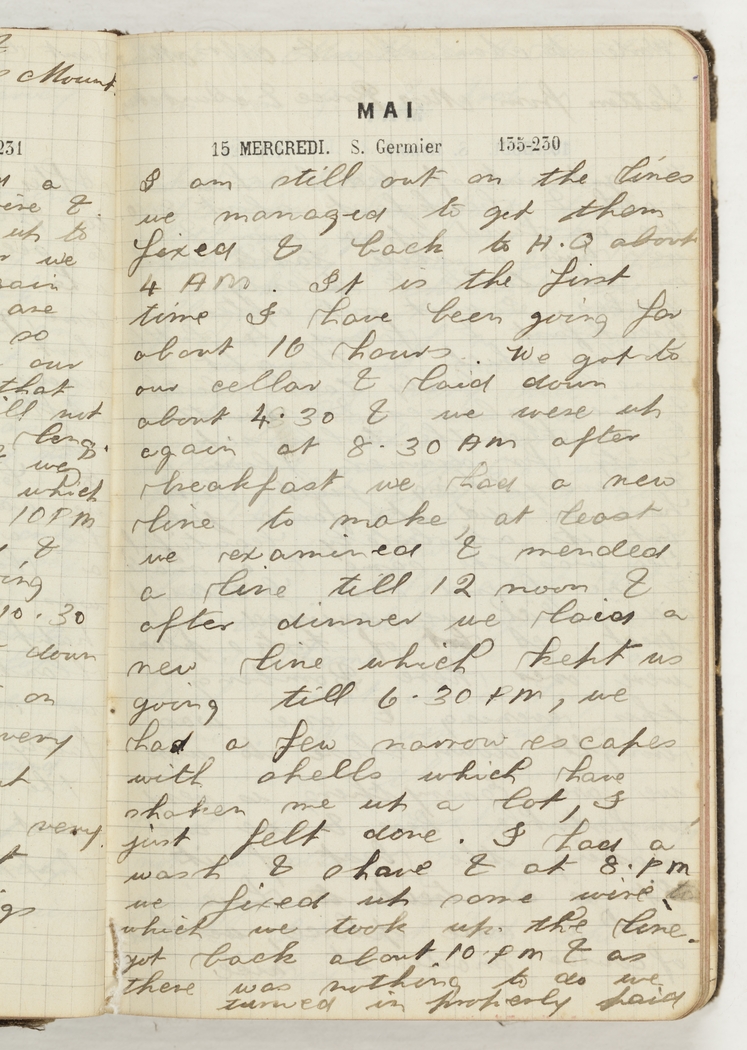 Mount.
231
a
&
up to
we
are
so
our
that
ill not
leng.
we
which
10 PM
&
ing
10.30
down
on
very
very
gs
MAI
15 MERCREDI. S. Germier 135-230
I am still out on the lines
we managed to get them
fixed & back to H.Q about
4 AM. It is the first
time I have been going for
about 16 hours. We got to
our cellar & laid down
about 4.30 & we were up
again at 8.30 AM after
breakfast we had a new
line to make, at least
we examined & mended
a line till 12 noon &
after dinner we laid a
new line which kept us
going till 6.30 PM, we
had a few narrow escapes
with shells which have
shaken me up a lot, I
just felt done. I had a
wash & shave & at 8.PM
we fixed up some wire
which we took up the line.
got back about 10.PM & as
there was nothing to do we
turned in properly